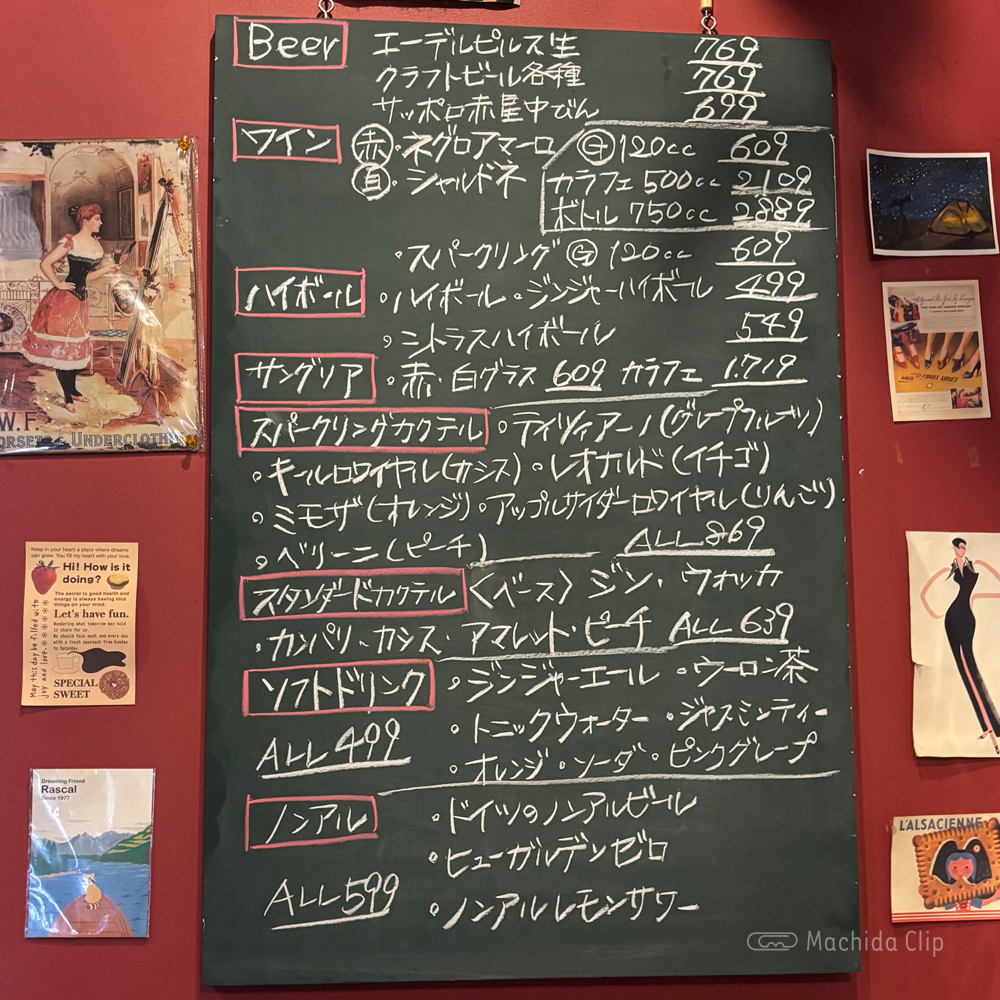 Beer エーデルピルス生 769
クラフトビール各種 769
サッポロ赤星中びん 699
ワイン 赤・ネグロアマーロ G 120cc 609
白・シャルドネ カラフェ 500cc 2109
ボトル 750cc 2889
・スパークリング G 120cc 609
ハイボール ・ハイボール ・ジンジャーハイボール 499
・シトラスハイボール 549
サングリア ・赤・白グラス 609 カラフェ 1.719
スパークリングカクテル ・ティツィアーノ(グレープフルーツ)
・キールロワイヤル(カシス) ・レオナルド(イチゴ)
・ミモザ(オレンジ) ・アップルサイダーロワイヤル(りんご)
・ベリーニ(ピーチ) ALL 869
スタンダードカクテル 〈ベース〉 ジン・ウォッカ
・カンパリ・カシス・アマレット・ピーチ ALL 639
ソフトドリンク ・ジンジャーエール ・ウーロン茶
・トニックウォーター ・ジャスミンティー
ALL 499 ・オレンジ・ソーダ・ピンクグレープ
ノンアル ・ドイツのノンアルビール
・ヒューガルデンゼロ
ALL 599 ・ノンアルレモンサワー
W.F.
CORSETS & UNDERCLOTH
Keep in your heart a place where dreams
can grow. You fill my heart with your love.
Hi! How is it
doing?
The secret to good health and
energy to always having nice
things on your mind.
Let's have fun.
Wondering what tomorrow may
hold in store for us.
We should face each and every day
with a fresh approach from Sunday
to Saturday.
May this day be filled with
joy and love.
SPECIAL
SWEET
Dreaming Friend
Rascal
Since 1977
L'ALSACIENNE
Machida Clip